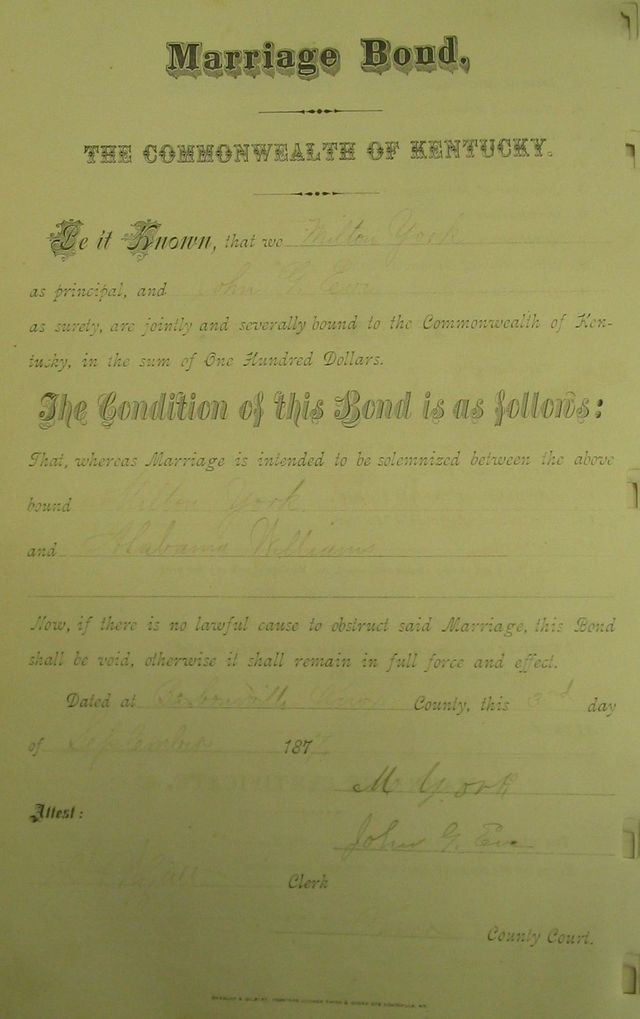 Marriage Bond.
THE COMMONWEALTH OF KENTUCKY.
Be it Known, that we Milton York
as principal, and John G. Eve
as surety, are jointly and severally bound to the Commonwealth of Ken-
tucky, in the sum of One Hundred Dollars.
The Condition of this Bond is as follows:
That, whereas Marriage is intended to be solemnized between the above
bound Milton York
and Alabama Williams
Now, if there is no lawful cause to obstruct said Marriage, this Bond
shall be void, otherwise it shall remain in full force and effect.
Dated at Barbourville Knox County, this 3rd day
of September 187
M York
Attest:
John G. Eve
Clerk
County Court.